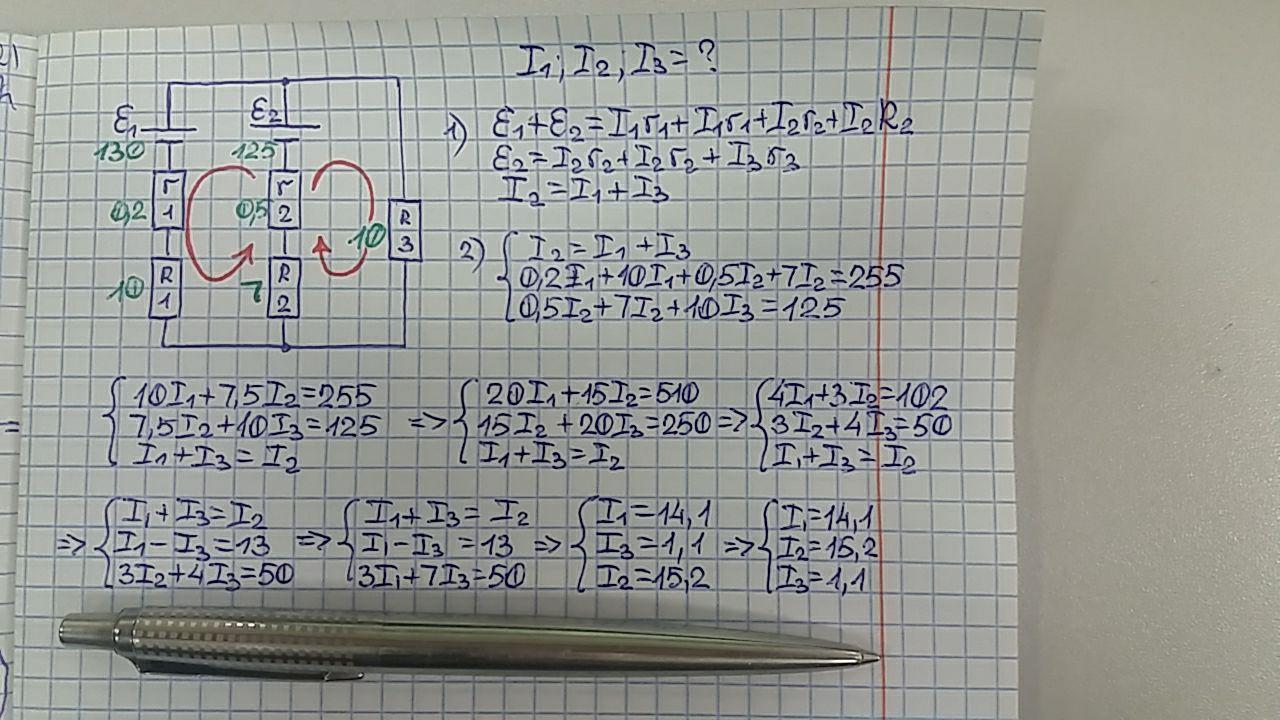 I₁; I₂; I₃ = ?
ε₁
130
ε₂
125
r
1
0,2
r
2
0,5
R
3
10
R
1
10
R
2
7
1) ε₁+ε₂=I₁r₁+I₁r₁+I₂r₂+I₂R₂
ε₂=I₂r₂+I₂r₂+I₃r₃
I₂=I₁+I₃
2) { I₂=I₁+I₃
0,2I₁+10I₁+0,5I₂+7I₂=255
0,5I₂+7I₂+10I₃=125
{ 10I₁+7,5I₂=255
7,5I₂+10I₃=125
I₁+I₃=I₂
=> { 20I₁+15I₂=510
15I₂+20I₃=250
I₁+I₃=I₂
=> { 4I₁+3I₂=102
3I₂+4I₃=50
I₁+I₃=I₂
=> { I₁+I₃=I₂
I₁-I₃=13
3I₂+4I₃=50
=> { I₁+I₃=I₂
I₁-I₃=13
3I₁+7I₃=50
=> { I₁=14,1
I₃=1,1
I₂=15,2
=> { I₁=14,1
I₂=15,2
I₃=1,1